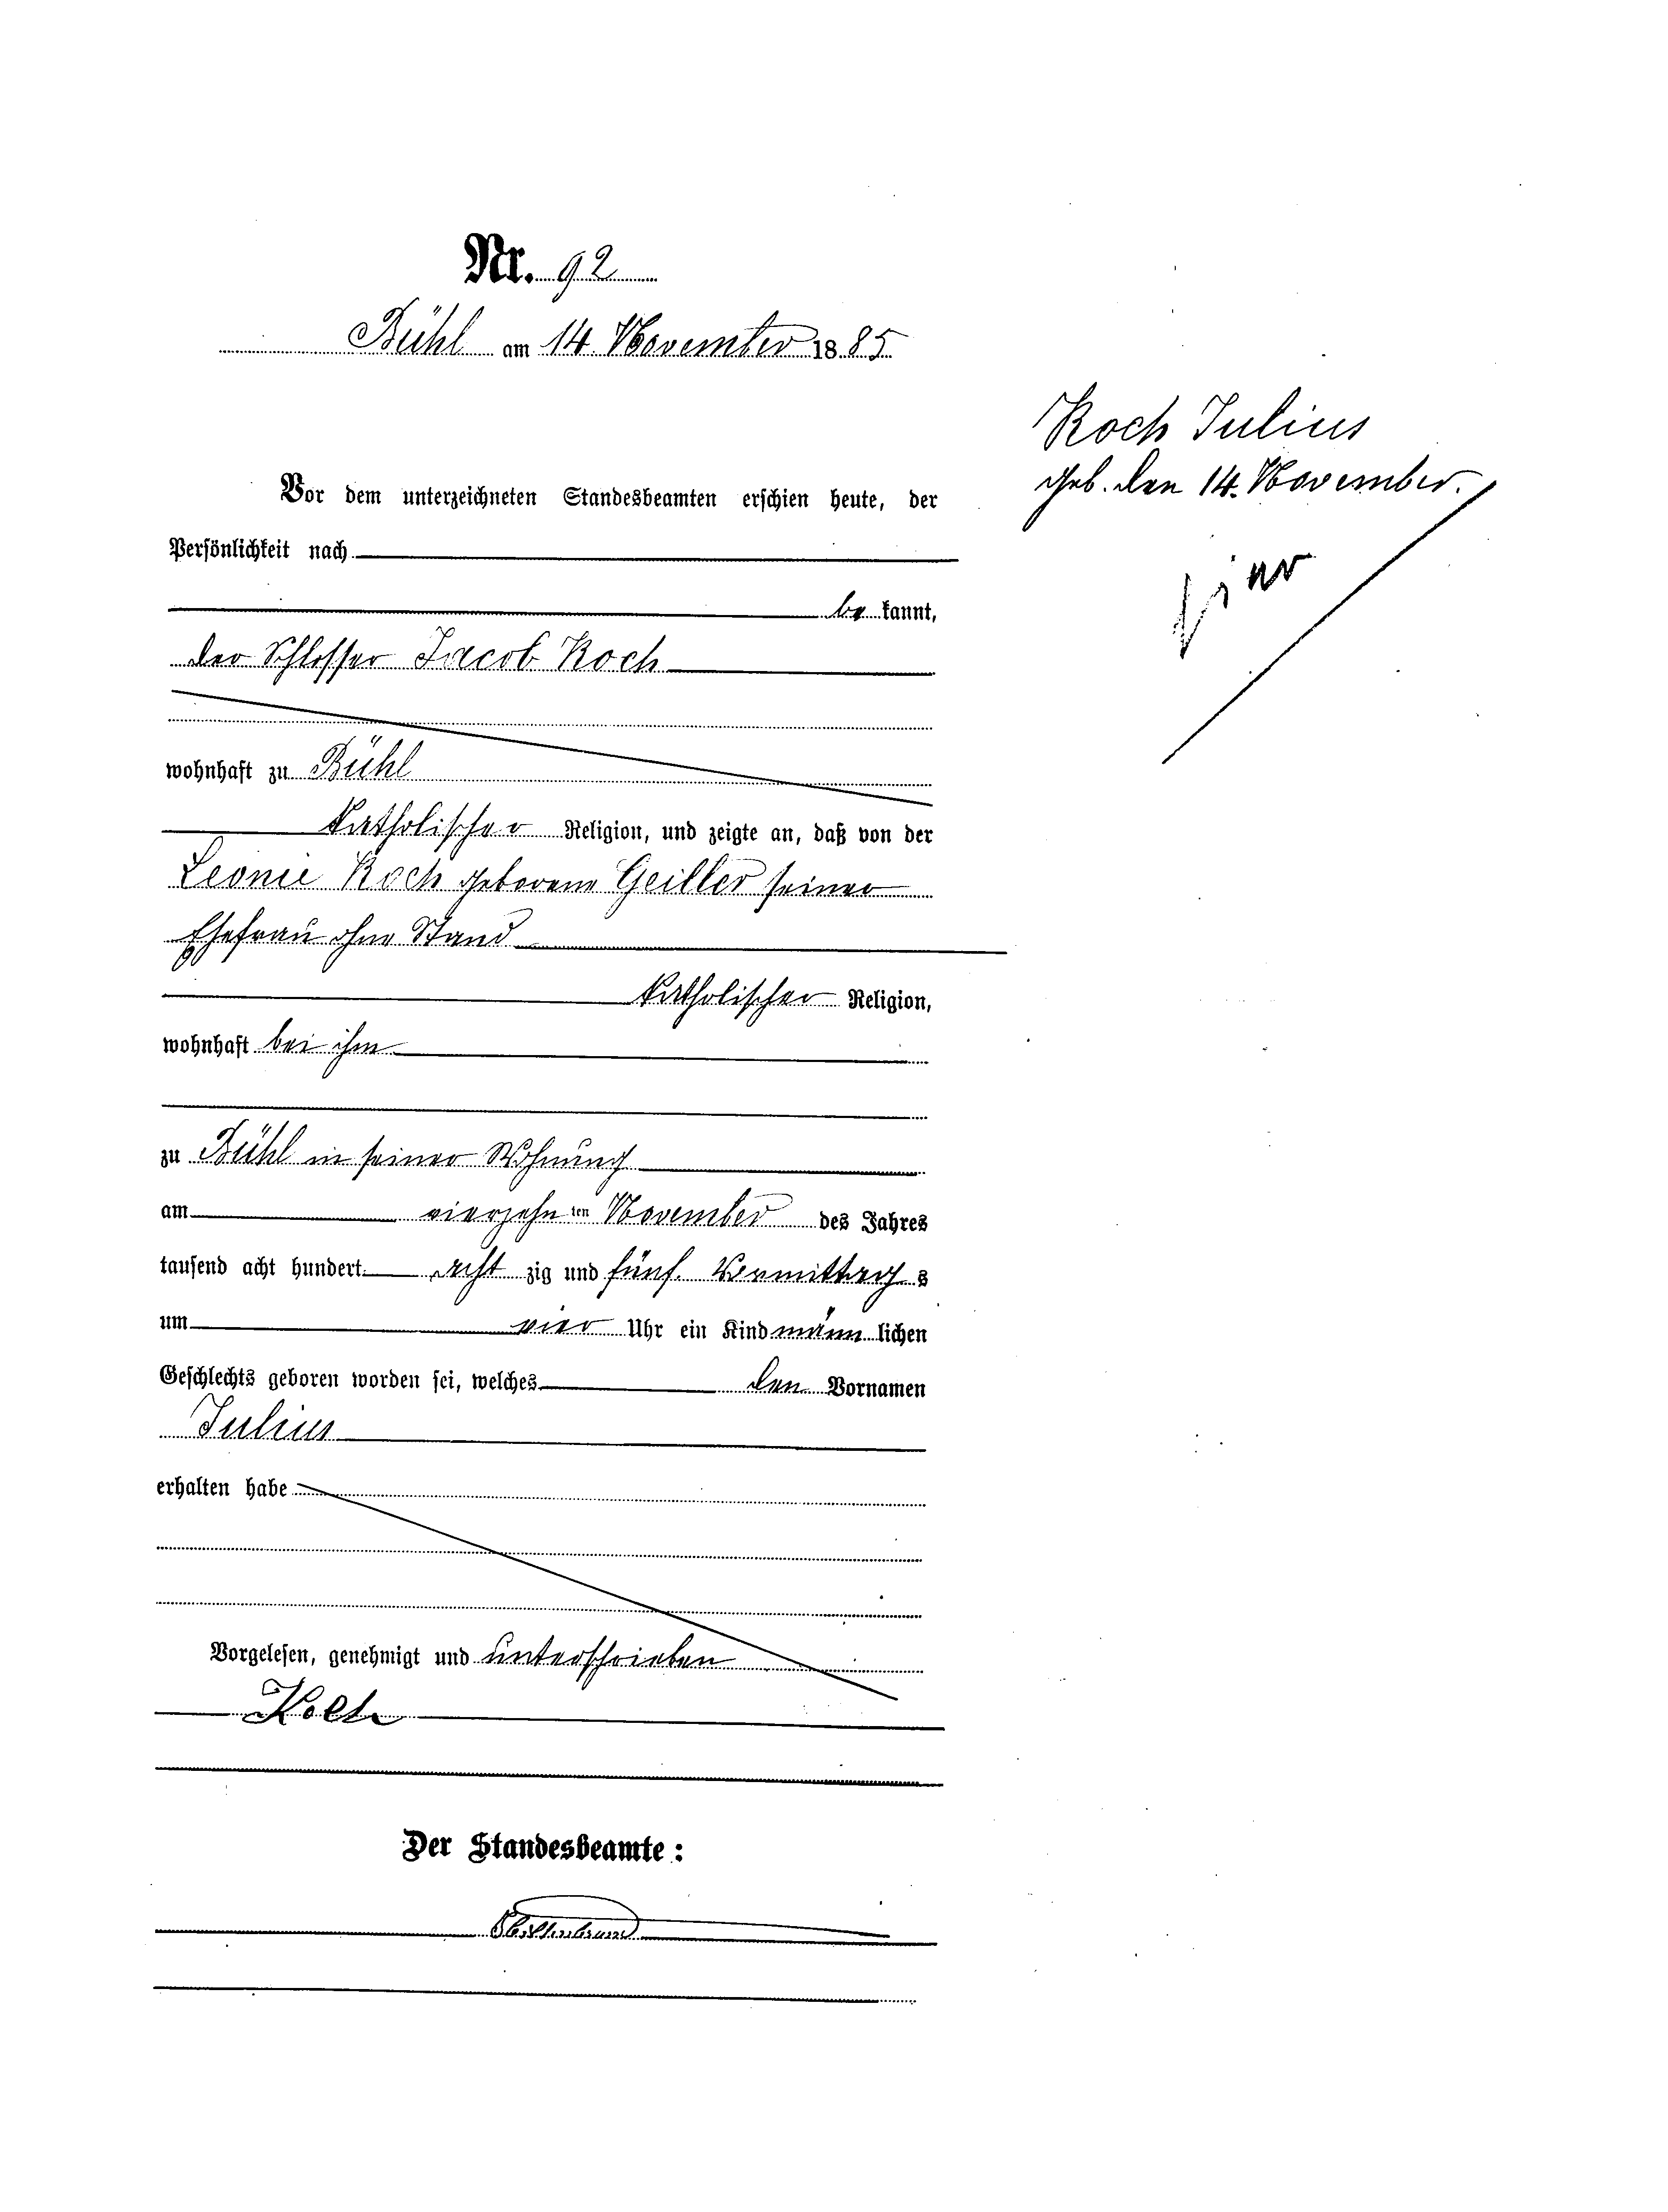 Nr. 92
Bühl am 14. November 1885
Koch Julius
geb. den 14. November.
hier
Vor dem unterzeichneten Standesbeamten erschien heute, der
Persönlichkeit nach
be kannt,
der Schlosser Jacob Koch
wohnhaft zu Bühl
katholischer Religion, und zeigte an, daß von der
Leonie Koch geborene Geiller seiner
Ehefrau ohne Stand
katholischer Religion,
wohnhaft bei ihm
zu Bühl in seiner Wohnung
am vierzehn ten November des Jahres
tausend acht hundert acht zig und fünf. Vormittag s
um vier Uhr ein Kind männ lichen
Geschlechts geboren worden sei, welches den Vornamen
Julius
erhalten habe
Vorgelesen, genehmigt und unterschrieben
Koch
Der Standesbeamte: